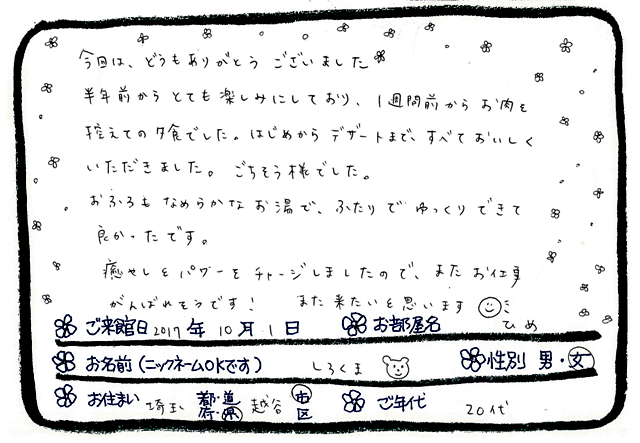 今回は、どうもありがとう ございました
半年前から とても 楽しみにしており、1週間前から お肉を
控えての夕食でした。はじめから デザートまで、すべて おいしく
いただきました。 ごちそう様でした。
おふろも なめらかな お湯で、ふたりで ゆっくり できて
良かったです。
癒やしと パワーを チャージしましたので、また お仕事
がんばれそうです! また 来たいと 思います
ご来館日 2017 年 10 月 1 日 お部屋名 ひめ
お名前(ニックネームOKです) しろくま 性別 男・女
お住まい 埼玉 都・道 府・県 越谷 市 区 ご年代 20代